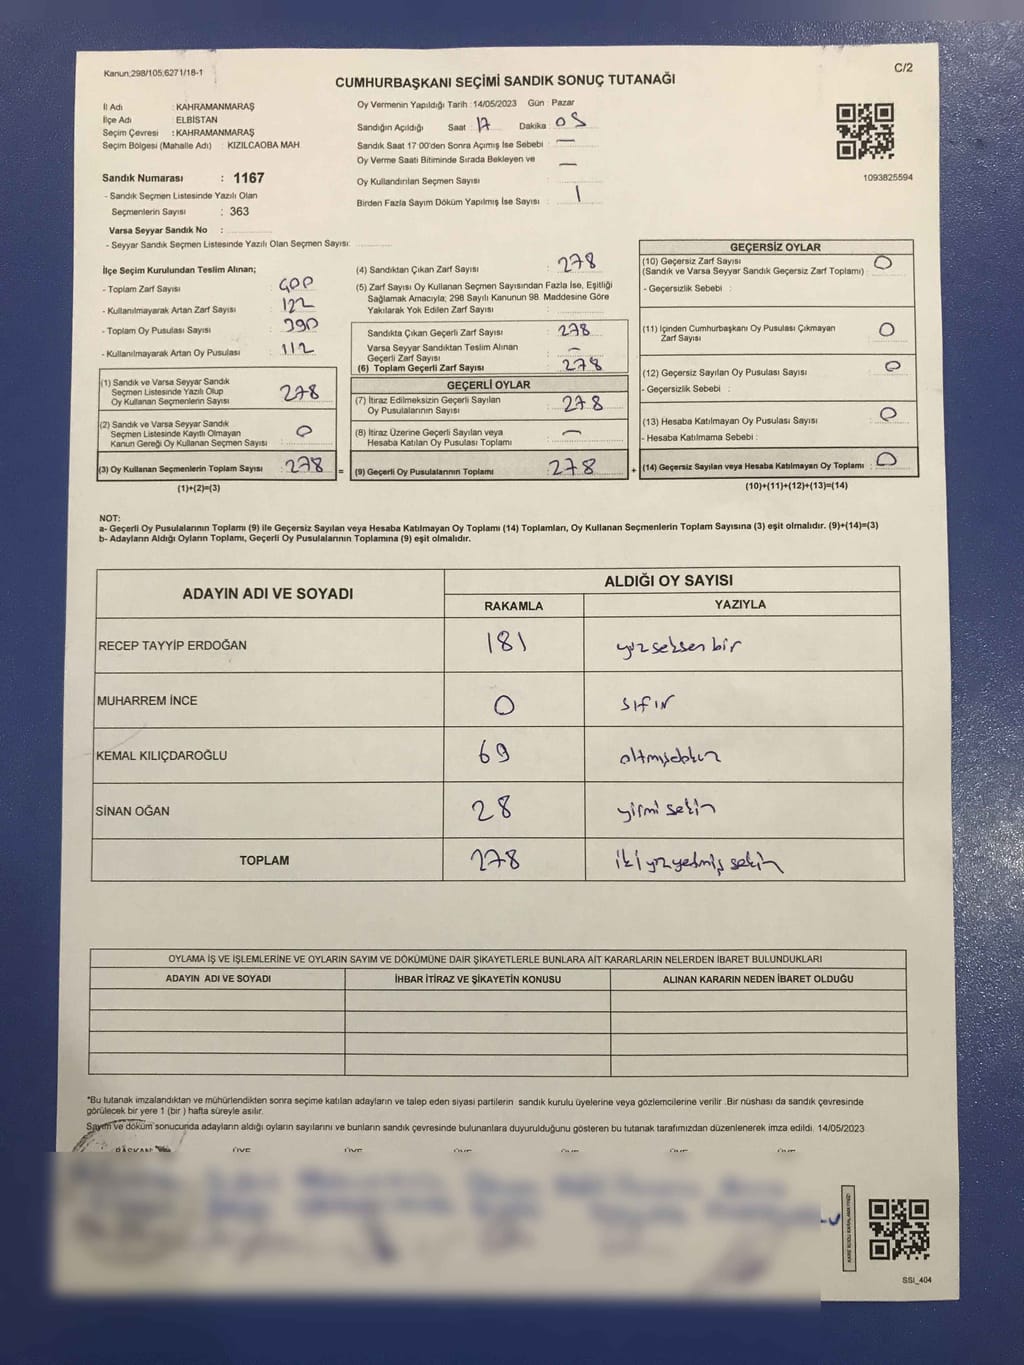 Kanun:298/105;6271/18-1
C/2
CUMHURBAŞKANI SEÇİMİ SANDIK SONUÇ TUTANAĞI
İl Adı : KAHRAMANMARAŞ
İlçe Adı : ELBİSTAN
Seçim Çevresi : KAHRAMANMARAŞ
Seçim Bölgesi (Mahalle Adı) : KIZILCAOBA MAH
Sandık Numarası : 1167
- Sandık Seçmen Listesinde Yazılı Olan
Seçmenlerin Sayısı : 363
Varsa Seyyar Sandık No :
- Seyyar Sandık Seçmen Listesinde Yazılı Olan Seçmen Sayısı:
Oy Vermenin Yapıldığı Tarih : 14/05/2023 Gün : Pazar
Sandığın Açıldığı Saat : 17 Dakika : 05
Sandık Saat 17:00'den Sonra Açımış İse Sebebi : —
Oy Verme Saati Bitiminde Sırada Bekleyen ve —
Oy Kullandırılan Seçmen Sayısı :
Birden Fazla Sayım Döküm Yapılmış İse Sayısı : 1
1093825594
İlçe Seçim Kurulundan Teslim Alınan;
- Toplam Zarf Sayısı : 400
- Kullanılmayarak Artan Zarf Sayısı : 122
- Toplam Oy Pusulası Sayısı : 390
- Kullanılmayarak Artan Oy Pusulası : 112
(1) Sandık ve Varsa Seyyar Sandık
Seçmen Listesinde Yazılı Olup
Oy Kullanan Seçmenlerin Sayısı : 278
(2) Sandık ve Varsa Seyyar Sandık
Seçmen Listesinde Kayıtlı Olmayan
Kanun Gereği Oy Kullanan Seçmen Sayısı : 0
(3) Oy Kullanan Seçmenlerin Toplam Sayısı : 278
(1)+(2)=(3)
(4) Sandıktan Çıkan Zarf Sayısı : 278
(5) Zarf Sayısı Oy Kullanan Seçmen Sayısından Fazla İse, Eşitliği
Sağlamak Amacıyla; 298 Sayılı Kanunun 98. Maddesine Göre
Yakılarak Yok Edilen Zarf Sayısı :
Sandıkta Çıkan Geçerli Zarf Sayısı : 278
Varsa Seyyar Sandıktan Teslim Alınan
Geçerli Zarf Sayısı : —
(6) Toplam Geçerli Zarf Sayısı : 278
GEÇERLİ OYLAR
(7) İtiraz Edilmeksizin Geçerli Sayılan
Oy Pusulalarının Sayısı : 278
(8) İtiraz Üzerine Geçerli Sayılan veya
Hesaba Katılan Oy Pusulası Toplamı : —
= (9) Geçerli Oy Pusulalarının Toplamı : 278
GEÇERSİZ OYLAR
(10) Geçersiz Zarf Sayısı
(Sandık ve Varsa Seyyar Sandık Geçersiz Zarf Toplamı) : 0
- Geçersizlik Sebebi :
(11) İçinden Cumhurbaşkanı Oy Pusulası Çıkmayan
Zarf Sayısı : 0
(12) Geçersiz Sayılan Oy Pusulası Sayısı : 0
- Geçersizlik Sebebi :
(13) Hesaba Katılmayan Oy Pusulası Sayısı : 0
- Hesaba Katılmama Sebebi :
+ (14) Geçersiz Sayılan veya Hesaba Katılmayan Oy Toplamı : 0
(10)+(11)+(12)+(13)=(14)
NOT:
a- Geçerli Oy Pusulalarının Toplamı (9) ile Geçersiz Sayılan veya Hesaba Katılmayan Oy Toplamı (14) Toplamları, Oy Kullanan Seçmenlerin Toplam Sayısına (3) eşit olmalıdır. (9)+(14)=(3)
b- Adayların Aldığı Oyların Toplamı, Geçerli Oy Pusulalarının Toplamına (9) eşit olmalıdır.
ADAYIN ADI VE SOYADI ALDIĞI OY SAYISI
RAKAMLA YAZIYLA
RECEP TAYYİP ERDOĞAN 181 yüzseksen bir
MUHARREM İNCE 0 sıfır
KEMAL KILIÇDAROĞLU 69 altmışdokuz
SİNAN OĞAN 28 yirmi sekiz
TOPLAM 278 iki yüzyetmiş sekiz
OYLAMA İŞ VE İŞLEMLERİNE VE OYLARIN SAYIM VE DÖKÜMÜNE DAİR ŞİKAYETLERLE BUNLARA AİT KARARLARIN NELERDEN İBARET BULUNDUKLARI
ADAYIN ADI VE SOYADI İHBAR İTİRAZ VE ŞİKAYETİN KONUSU ALINAN KARARIN NEDEN İBARET OLDUĞU
*Bu tutanak imzalandıktan ve mühürlendikten sonra seçime katılan adayların ve talep eden siyasi partilerin sandık kurulu üyelerine veya gözlemcilerine verilir .Bir nüshası da sandık çevresinde
görülecek bir yere 1 (bir ) hafta süreyle asılır.
Sayım ve döküm sonucunda adayların aldığı oyların sayılarını ve bunların sandık çevresinde bulunanlara duyurulduğunu gösteren bu tutanak tarafımızdan düzenlenerek imza edildi. 14/05/2023
BAŞKAN ÜYE ÜYE ÜYE ÜYE ÜYE ÜYE
SSI_404